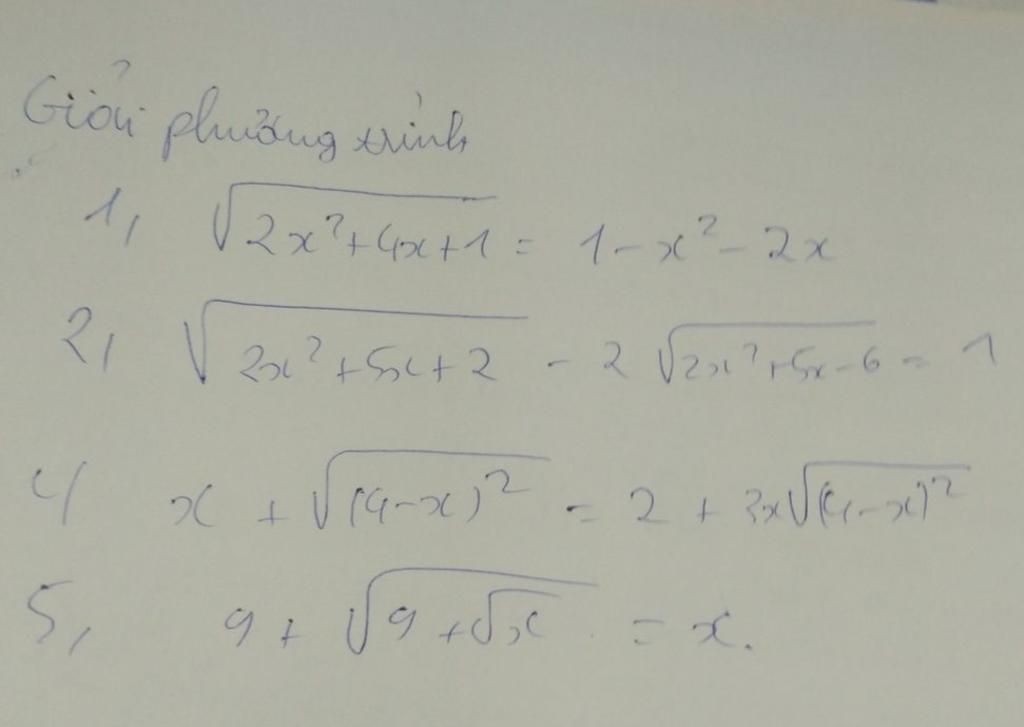 Giải phương trình
1, √(2x²+4x+1) = 1-x²-2x
2, √(2x²+5x+2) - 2√(2x²+5x-6) = 1
4, x + √((4-x)²) = 2 + 3x√((4-x)²)
5, 9 + √(9+√x) = x.